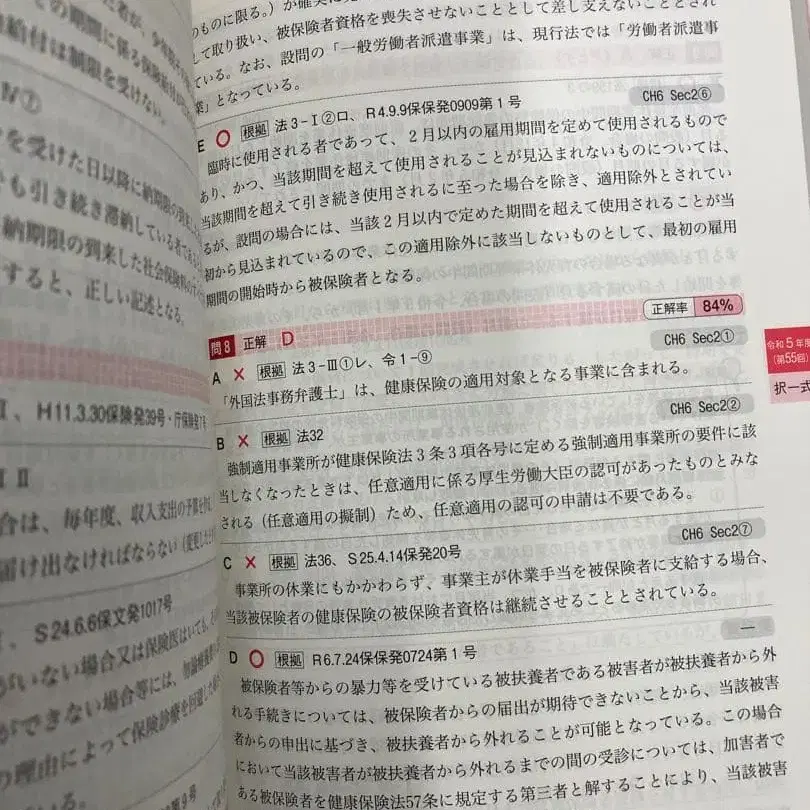 のものに限る。）が確実に
して取り扱い、被保険者資格を喪失させないこととして差し支えないこととされ
ている。なお、設問の「一般労働者派遣事業」は、現行法では「労働者派遣事
業」となっている。
CH6 Sec2⑥
E ○ 根拠 法3-Ⅰ②ロ、R4.9.9保保発0909第1号
臨時に使用される者であって、2月以内の雇用期間を定めて使用されるもので
あり、かつ、当該期間を超えて使用されることが見込まれないものについては、
当該期間を超えて引き続き使用されるに至った場合を除き、適用除外とされてい
るが、設問の場合には、当該2月以内で定めた期間を超えて使用されることが当
初から見込まれているので、この適用除外に該当しないものとして、最初の雇用
期間の開始時から被保険者となる。
正解率 84%
問8 正解 D
CH6 Sec2①
A × 根拠 法3-Ⅲ①レ、令1-⑨
「外国法事務弁護士」は、健康保険の適用対象となる事業に含まれる。
CH6 Sec2②
B × 根拠 法32
強制適用事業所が健康保険法3条3項各号に定める強制適用事業所の要件に該
当しなくなったときは、任意適用に係る厚生労働大臣の認可があったものとみな
される（任意適用の擬制）ため、任意適用の認可の申請は不要である。
CH6 Sec2⑦
C × 根拠 法36、S25.4.14保発20号
事業所の休業にもかかわらず、事業主が休業手当を被保険者に支給する場合、
当該被保険者の健康保険の被保険者資格は継続させることとされている。
―
D ○ 根拠 R6.7.24保保発0724第1号
被保険者等からの暴力等を受けている被扶養者である被害者が被扶養者から外
れる手続きについては、被保険者からの届出が期待できないことから、当該被害
者からの申出に基づき、被扶養者から外れることが可能となっている。この場合
において当該被害者が被扶養者から外れるまでの間の受診については、加害者で
ある被保険者を健康保険法57条に規定する第三者と解することにより、当該被害
令和5年度
（第55回）
択一式
の期間に係る保険給付
給付は制限を受けない。
Ⅳ⑦
を受けた日以降に納期限の到来し
も引き続き滞納している者であ
納期限の到来した社会保険料
すると、正しい記述となる。
、H11.3.30保険発39号・庁保険発7号
ⅠⅡ
合は、毎年度、収入支出の予算を
届け出なければならない（変更した
、S24.6.6保文発1017号
がいない場合又は保険医はいても、
ができない場合等には、
の理由によって保険診療を
いる。